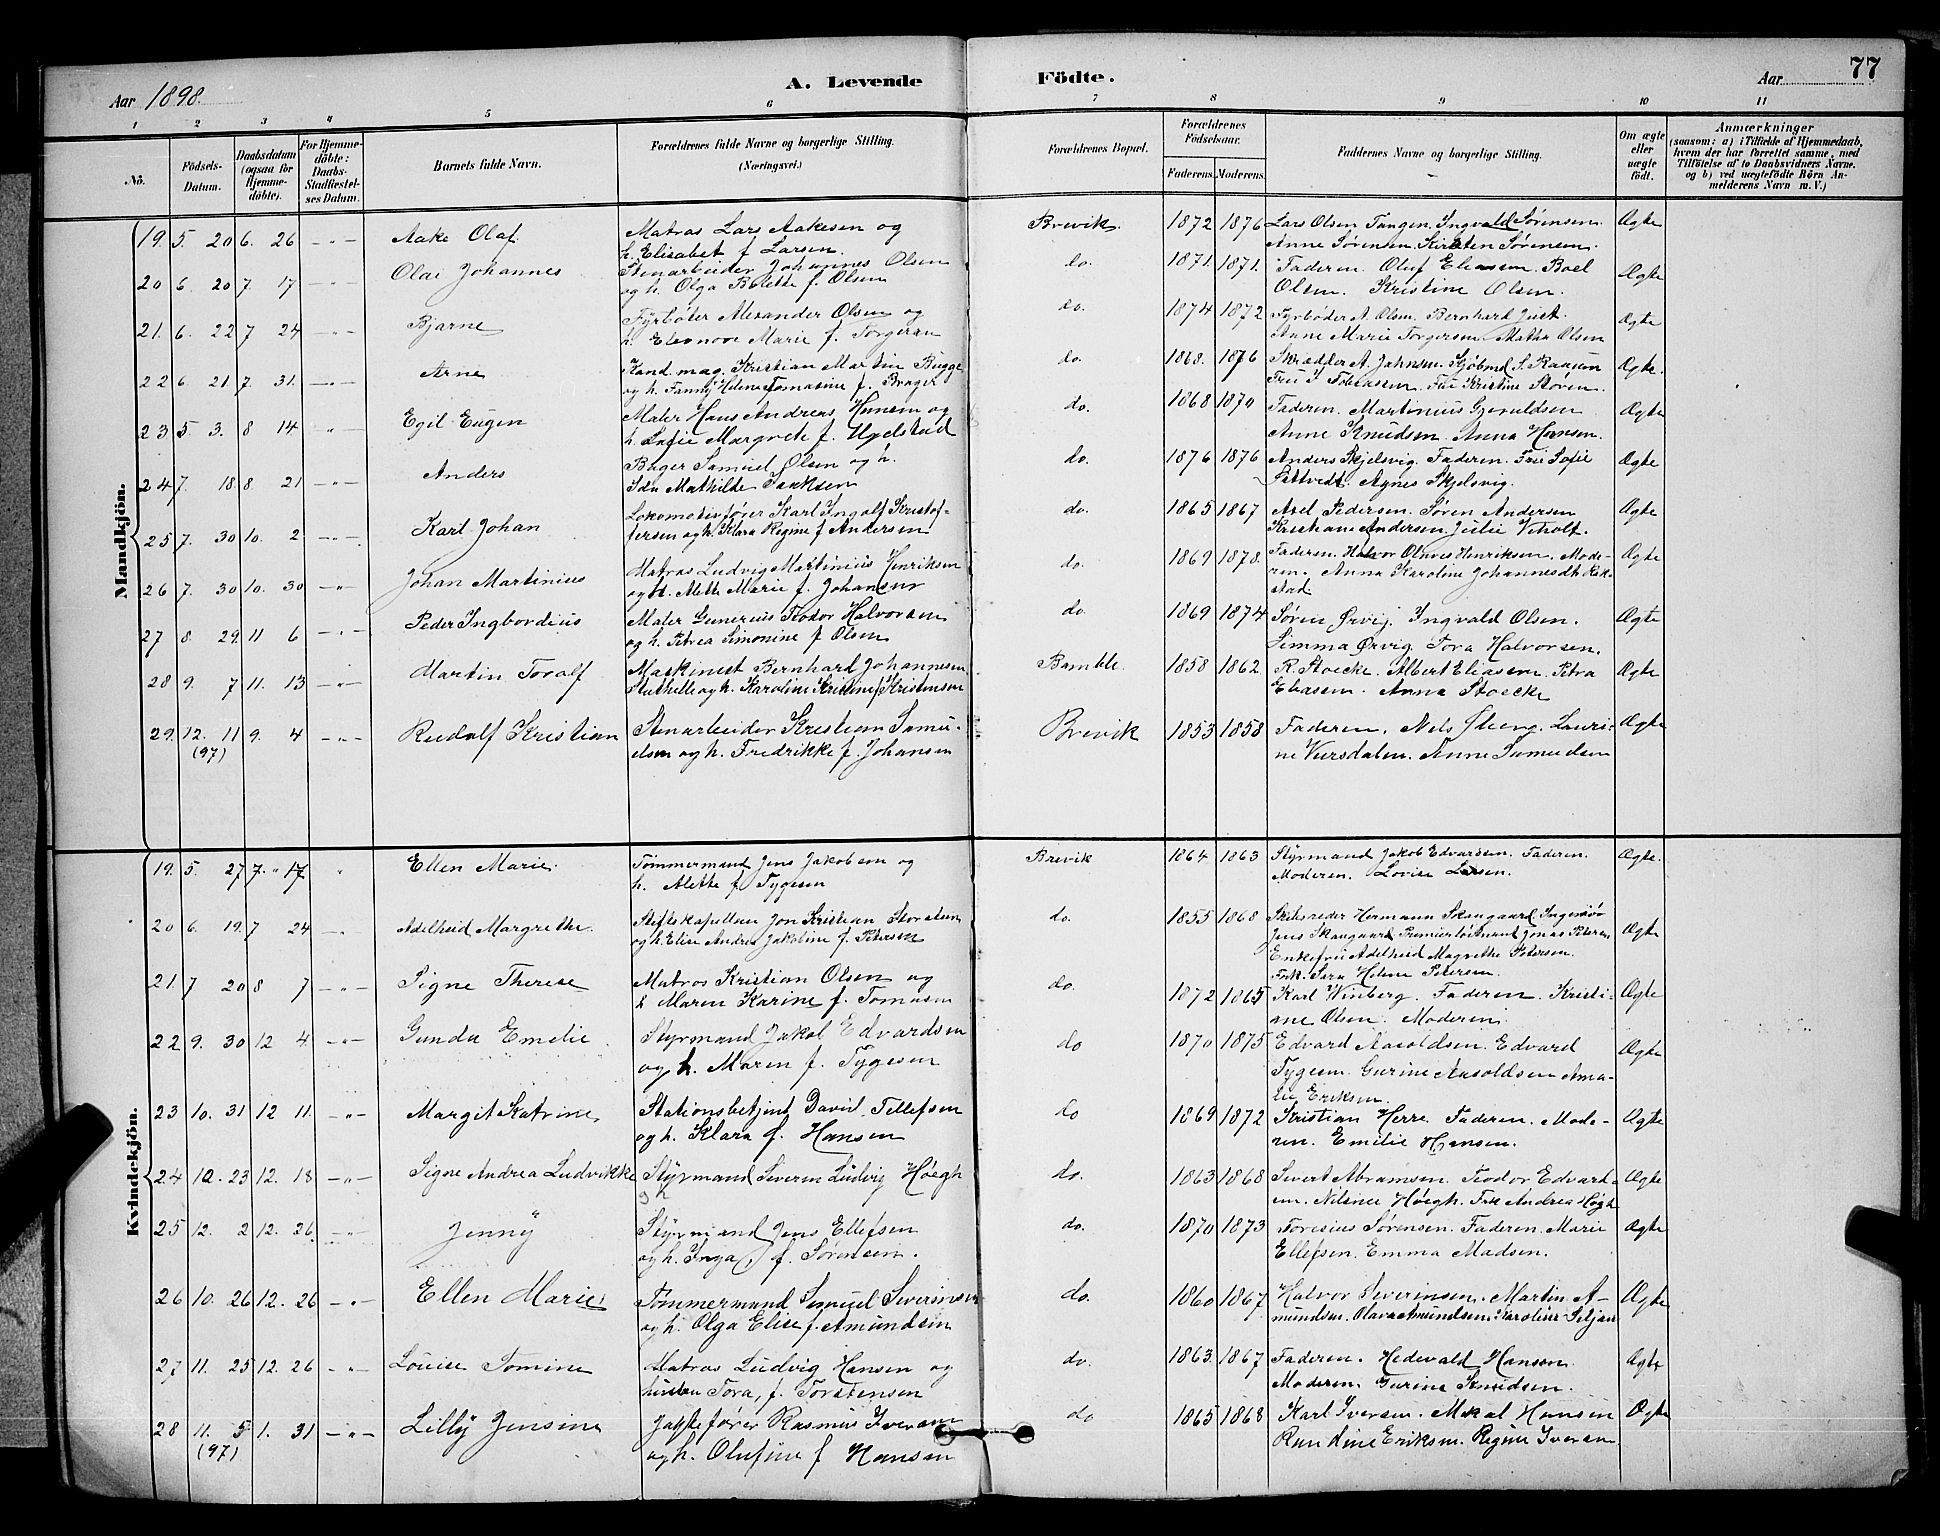 Aar 1898. A. Levende Födte. Aar 77
1 2 3 4 5 6 7 8 9 10 11
No. Födsels-Datum. Daabsdatum (ogsaa for Hjemme-döbte). For Hjemme-döbte: Daabs-Stadfæstel-ses Datum. Barnets fulde Navn. Forældrenes fulde Navne og borgerlige Stilling. (Næringsvei.) Forældrenes Bopæl. Forældrenes Födselsaar. Faderens. Moderens. Faddernes Navne og borgerlige Stilling. Om ægte eller uægte födt. Anmærkninger (saasom: a) i Tilfælde af Hjemmedaab, hvem der har forrettet samme, med Tilföielse af to Daabsvidners Navne. og b) ved uægtefödte Börn An-melderens Navn m. V.)
Mandkjön.
19. 5. 20 6. 26 Aake Olaf Matros Lars Aakesen og Brevik. 1872 1876 Lars Olsen Tangen. Ingvald Sørensen. Ægte
h. Elisabet f. Larsen Anne Sørensen. Kirsten Sørensen.
20 6. 20 7 17 Olai Johannes Stenarbeider Johannes Olsen do. 1871. 1871. Faderen. Oluf Eliassen. Boel Ægte
og h. Olga Bolette f. Olsen Olsen. Kristine Olsen.
21. 6. 22 7 24 Bjarne Fyrbøter Alexander Olsen og do. 1874 1872 Fyrbøder A. Olsen. Bernhard Just. Ægte
h. Elenove Marie f. Torgersen Anne Marie Torgersen. Mathea Olsen
22 6. 21 7. 31. Arne Kand. mag. Kristian Martin Bugge do. 1868. 1876 Skrædder A. Johnsen. Kjøbmd S. Raaum Ægte.
og h. Fanny Helene Tomasine f. Brager Fru S. Tobiassen. Fru Kristine Støren.
23 5. 3. 8 14 Egil Eugen Maler Hans Andreas Hansen og do. 1868 1870 Faderen. Martinius Gjeruldsen Ægte
h. Sofie Margrete f. Ugelstad Anne Knudsen. Anna Hansen.
24 7. 18 8 21 Anders Bager Samuel Olsen og h. do. 1876 1876 Anders Skjelsvig. Faderen. Fru Sofie Ægte
Ida Mathilde Isaksen Agnes Skjelsvig.
25 7. 30 10. 2 Karl Johan Lokomotivfører Karl Ingolf Kristof- do. 1865 1867 Axel Pedersen. Søren Andersen Ægte
fersen og h. Klara Regine f. Andersen Kristiane Andersen Julie Vitholt.
26 7. 30 10. 30 Johan Martinius Matros Ludvig Martinius Henriksen do. 1869 1878. Faderen. Halvor Olaves Henriksen. Mode- Ægte
og h. Mette Marie f. Johansen ren. Anna Karoline Johannesdt. Rak-
stad.
27 8. 29. 11 6 Peder Ingbordius Maler Gunerius Teodor Halvorsen do. 1869 1874 Søren Ørvig. Ingvald Olsen. Ægte
og h. Petrea Simonine f. Olsen Simma Ørvig. Tora Halvorsen.
28 9. 7 11. 13 Martin Toralf Maskinist Bernhard Johannesen Bamble. 1858 1862 R. Stoecke. Albert Eliasen. Petra Ægte
Stathelle og h. Karoline Kristine f. Kristensen Eliasen. Anna Stoecke
29. 12. 11 9. 4 Rudolf Kristian Stenarbeider Kristian Samu- Brevik 1853 1858 Faderen. Nils Steng. Lauri- Ægte
(97) elsen og h. Fredrikke f. Johansen ne Versdalen. Anne Samuelsen
Kvindekjön.
19. 5. 27 7. 17 Ellen Marie. Tømmermand Jens Jakobsen og Brevik 1864 1863 Styrmand Jakob Edvardsen. Faderen. Ægte.
h. Alette f. Tygesen Moderen. Lovise Larsen.
20 6. 19. 7 24 Adelheid Margrethe. Stiftskapellan Jon Kristian Storaun do. 1855 1868 Skibsreder Hermann Skougaard. Ingeniør Ægte
og h. Elise Andrea Jakobine f. Petersen Jens Skougaard. Premierløitnant Jonas Petersen
Enkefru Adelheid Magrethe Petersen.
Frk. Sara Helene Petersen.
21. 7 20 8 7 Signe Therese Matros Kristian Olsen og do. 1872 1865 Karl Winberg. Faderen. Kristi- Ægte
h Maren Karine f. Tomasen ane Olsen. Moderen.
22 9. 30 12 4. Gunda Emelie Styrmand Jakob Edvardsen do 1870 1875 Edvard Aasoldsen. Edvard Ægte
og h. Maren f. Tygesen Tygesen. Gurine Aasoldsen Ama-
lie Eriksen.
23 10. 31 12 11. Margit Katrine Stationsbetjent David Tellefsen do 1869 1872 Kristian Herre. Faderen. Mode- Ægte
og h. Klara f. Hansen ren. Emilie Hansen.
24 10. 23 12. 18 Signe Andrea Ludvikke Styrmand Severin Ludvig Høegh do. 1863 1868 Sivert Abramsen. Teodor Edvard- Ægte
sen. Nilsine Høegh. Frk Andrea Høegh
25 12. 2 12. 26. Jenny Styrmand Jens Ellefsen do. 1870 1873 Toresius Sørensen. Faderen. Marie Ægte
og h. Inga f. Sørensen. Ellefsen. Emma Madsen.
26 10. 26 12. 26 Ellen Marie Tømmermand Samuel Severinsen do. 1860 1867 Halvor Severinsen. Martin A- Ægte
og h. Olga Elise f. Amundsen mundsen. Olava Amundsen. Karoline Siljan
27 11. 25 12. 26 Lovise Tomine Matros Ludvig Hansen og do. 1863. 1867 Faderen. Hedevald Hanson. Ægte
hustru Tora, f. Torstensen Moderen. Gurine Knudsen.
28 11. 5 1. 31 Lilly Jensine Jagtefører Rasmus Iversen do 1865 1868 Karl Iversen. Mikal Hansen Ægte
(97) og h. Olufine f Hansen Randine Eriksen. Regine Iversen